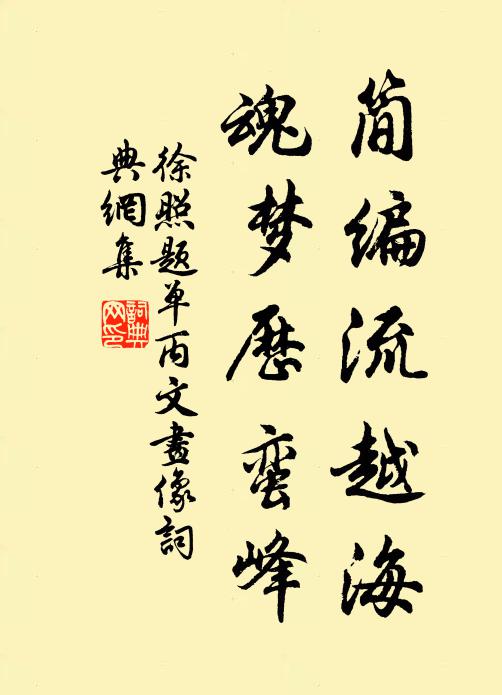 简编流越海
魂梦历蛮峰
徐照题单丙文畫像詞
典網集
詞典
网印